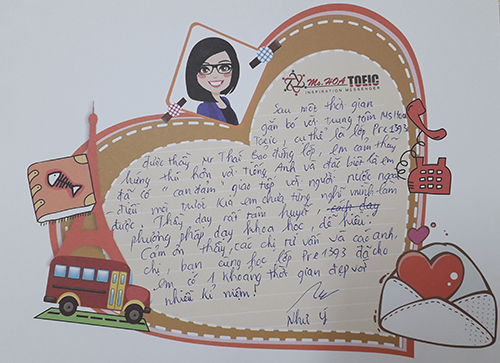 Ms. HOA TOEIC
INSPIRATION MESSENGER
Sau một thời gian
gắn bó với trung tâm Ms Hoa
Toeic, cụ thể là lớp Pre 1393
được thầy Mr Thái Bảo đứng lớp, em cảm thấy
hứng thú hơn với Tiếng Anh và đặc biệt là em
đã có "can đảm" giao tiếp với người nước ngoài
điều mà trước kia em chưa từng nghĩ mình làm
được. Thầy dạy rất tâm huyết,
phương pháp dạy khoa học, dễ hiểu.
Cảm ơn thầy, các chị tư vấn và các anh,
chị, bạn cùng học lớp Pre 1393 đã cho
em có 1 khoảng thời gian đẹp với
nhiều kỉ niệm!
Như Ý